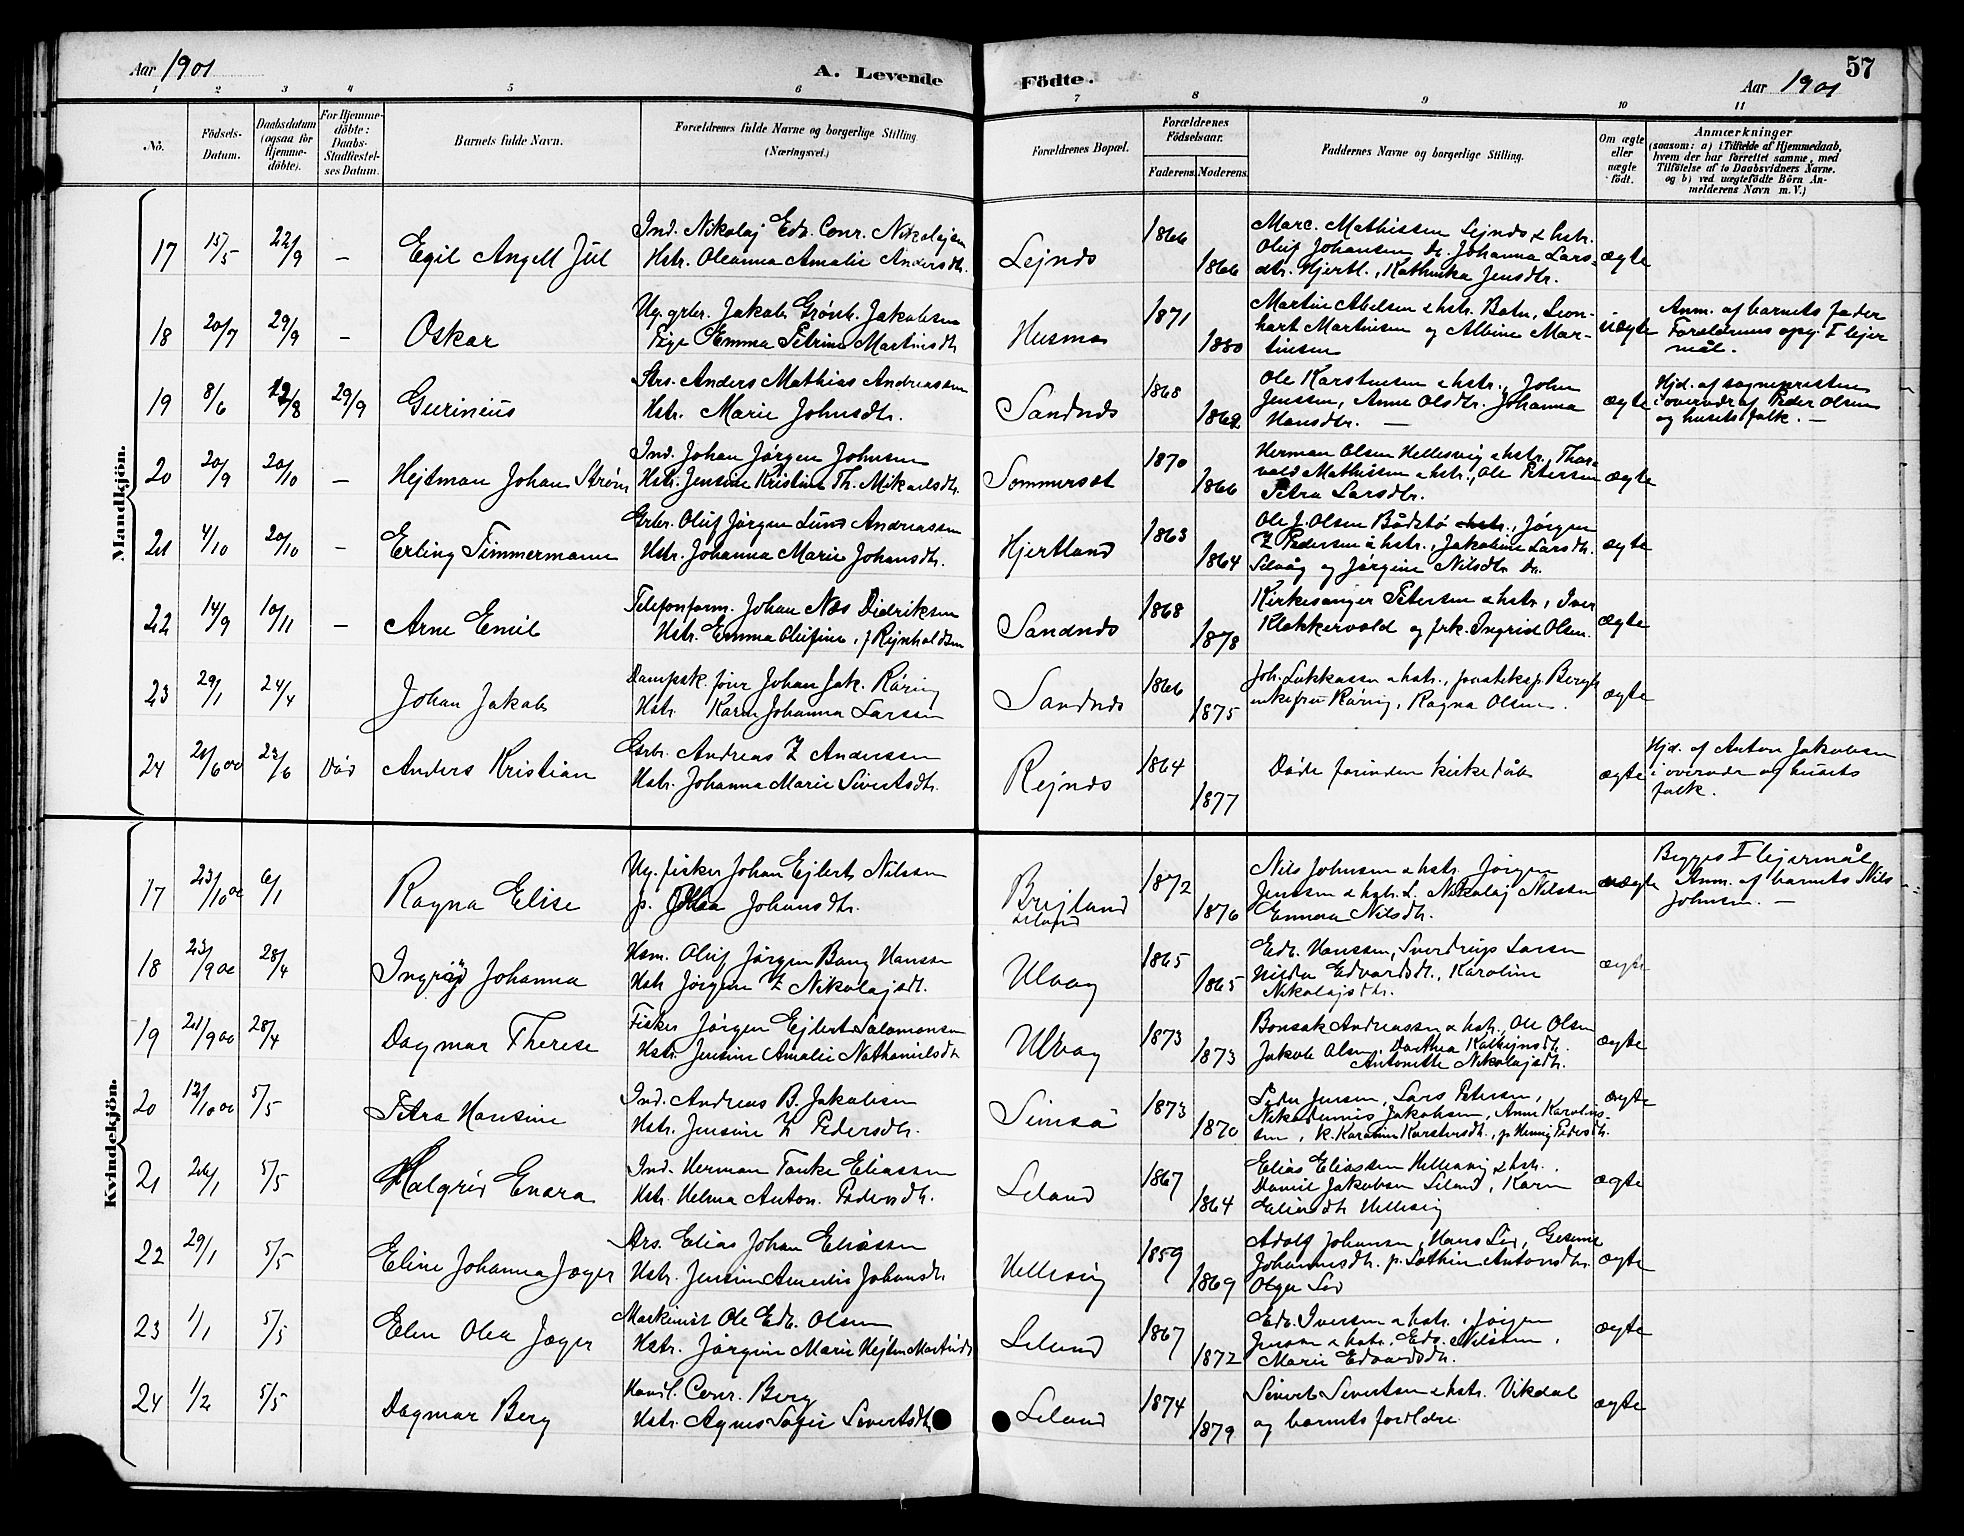 Aar 1901
A. Levende Födte.
Aar 1901
57
1 2 3 4 5 6 7 8 9 10 11
No.
Födsels-Datum.
Daabsdatum (ogsaa for Hjemme-döbte).
For Hjemme-döbte: Daabs-Stadfæstel-ses Datum.
Barnets fulde Navn.
Forældrenes fulde Navne og borgerlige Stilling (Næringsvei.)
Forældrenes Bopæl.
Forældrenes Födselsaar.
Faderens. Moderens.
Faddernes Navne og borgerlige Stilling.
Om ægte eller uægte født.
Anmærkninger
(saasom: a) i Tilfælde af Hjemmedaab,
hvem der har forrettet samme, med
Tilföielse af to Daabsvidners Navne.
og b) ved uægtefödte Börn An-
melderens Navn m. V.)
Mandkjön.
17 15/5 22/9 – Egil Angell Jul
Ind. Nikolaj Edv. Conr. Nikolajsen
Hstr. Oleanna Amalie Andersdtr.
Lejnds 1866 1866
Marc. Mathissen Lejnds & hstr.
Oluf Johansen Do. Johanna Lars-
dtr. Hjertl., Kathinka Jensdtr.
ægte
18 20/7 29/9 – Oskar
Ug. grbr. Jakob Grønb. Jakobsen
Pige Emma Petrine Martinsdtr
Husmo 1871 1880
Martin Abelsen & hstr. Botn, Leon-
hart Martinsen og Albine Mar-
tinsen
uægte
Anm. af barnets fader
Forældrenes opg. I lejer
mål.
19 8/6 12/8 29/9 Gurinius
Strs. Anders Mathias Andreassen
Hstr. Marie Johnsdtr.
Sandnds 1868 1862
Ole Karstensen & hstr., John
Jenssen, Anne Olsdtr. Johanna
Hansdtr. —
ægte
Hjd. af sognepresten
i overvær af Peder Olsen
og husets folk. —
20 20/9 20/10 – Hejtman Johan Strøm
Ind. Johan Jørgen Johnsen
Hstr. Jensine Kristine Th. Mikaelsdtr.
Sommerset 1870 1866
Herman Olsen Hellesvig & hstr., Thor-
vald Mathissen & hstr., Ole Petersen
Petra Larsdtr.
ægte
21 4/10 20/10 – Erling Timmermann
Grbr. Oluf Jørgen Lund Andreassen
Hstr. Johanna Marie Johansdtr.
Hjertland 1863 1864
Ole J. Olsen Bådstø hstr., Jørgen
Z Pedersen & hstr., Jakobine Larsdtr.
Silvåg og Jørgine Nilsdtr Do.
ægte
22 14/9 10/11 – Arne Emil
Telefonform. Johan Næs Didriksen
Hstr. Emma Olufine, f Rejnholdsen
Sandnds 1868 1878
Kirkesanger Petersen & hstr, Iver
Klokkervold og frk. Ingrid Olsen.
ægte
23 29/1 24/4 Johan Jakob
Dampsk. fører Johan Jak. Røring
Hstr. Karen Johanna Larsen
Sandnds 1866 1875
Joh. Lukkassen & hstr., posteksp. Bergh
enkefru Røring, Ragna Olsen.
ægte
24 21/6 00 23/6 Død Anders Kristian
Grbr. Andreas Z Anderssen
Hstr. Johanna Marie Sivertsdtr.
Rejnds 1864 1877
Døde forinden kirkedåb
ægte
Hjd. af Anton Jakobsen
i overvær af husets
folk.
Kvindekjön.
17 23/10 00 6/1 Ragna Elise
Ug. fisker Johan Ejlert Nilssen
p. Johansdtr.
Brejland 1872 1876
Nils Johnsen & hstr. Jørgen
Jenssen & hstr. L. Nikolaj Nilssen
Emma Nilsdtr.
uægte
Begges I lejermål
Anm. af barnets Nils
Johnsen. —
18 23/9 00 28/4 Ingrid Johanna
Hsm. Oluf Jørgen Bang Hansen
Hstr Jørgine Z Nikolajsdtr.
Ulvåg 1865 1865
Edv. Hanssen, Sverdrup Larsen
Hilda Edvardsdtr., Karoline
Nikolajsdtr.
ægte
19 21/9 00 28/4 Dagmar Therese
Fisker Jørgen Ejlert Salomonsen
Hstr. Jensine Amalie Nathanielsdtr
Ulvåg 1873 1873
Bonsak Andreassen & hstr., Ole Olsen
Jakob Olsen, Dorthea
Antonette Nikolajsdtr.
ægte
20 12/10 00 5/5 Petra Hansine
Ind. Andreas B. Jakobsen
Hstr. Jensine Z Pedersdtr.
Simsø 1873 1870
Peder Jensen, Lars Petersen,
Nikodemus Jakobsen, Anne Karolius-
sen, k. Karoline Karstensdtr., p. Henny Pedersdtr.
ægte
21 26/1 5/5 Halgrid Enara
Ind. Herman Tanke Eliassen
Hstr. Helma Anton. Pedersdtr.
Leland 1867 1864
Elias Eliassen Hellesvig & hstr.
Daniel Jakobsen Leland, Karen
Eliasdtr Hellesvig
ægte
22 29/1 5/5 Eline Johanna Jæger
Strs. Elias Johan Eliassen
Hstr. Jensine Johansdtr
Hellesvig 1859 1869
Adolf Johansen, Hans Lid, Gesine
Johannesdtr. p. Antonsdtr.
Olga Lid
ægte
23 1/1 5/5 Elen Olea Jæger
Maskinist Ole Edv. Olsen
Hstr. Jørgine Marie Hejtm. Martinsdtr
Leland 1867 1872
Edv. Iversen & hstr., Jørgen
Jenssen & hstr., Edv. Nilsen,
Marie Edvardsdtr.
ægte
24 1/2 5/5 Dagmar Berg
Handl. Conr. Berg
Hstr. Agnes Sofie Sivertsdtr
Leland 1874 1879
Sivert Sivertsen & hstr. Vikdal
og barnets forældre.
ægte